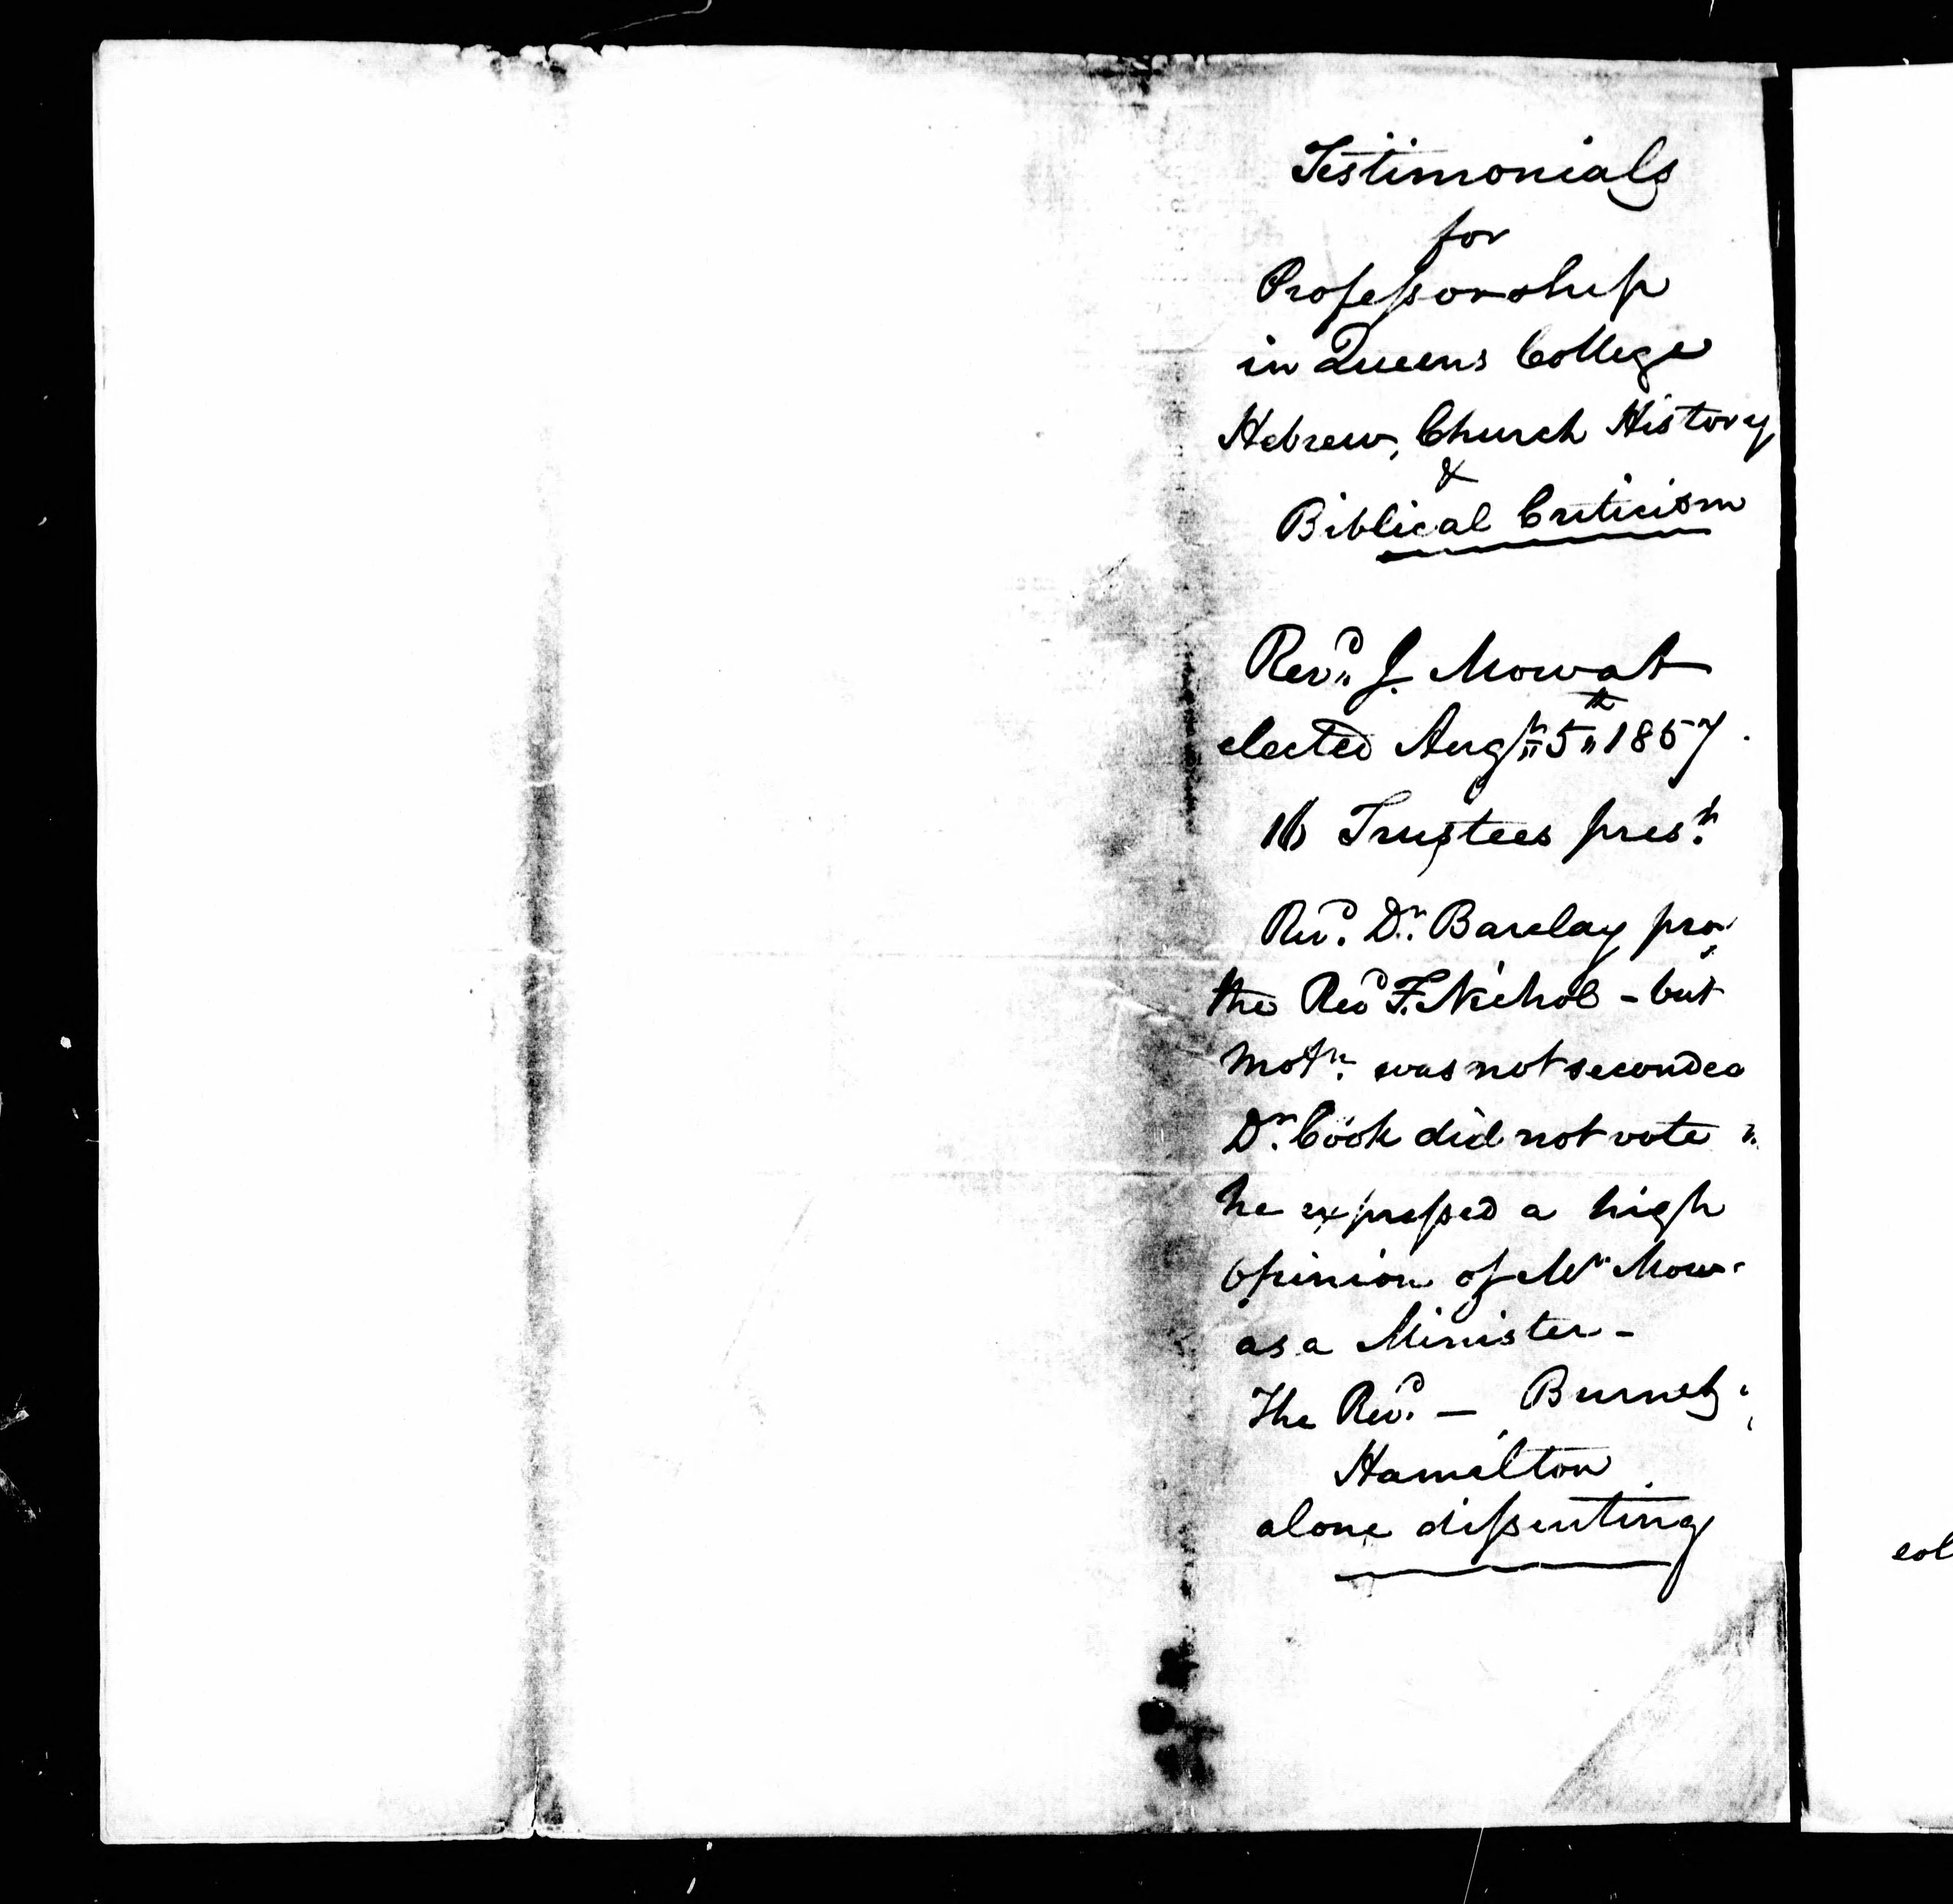 Testimonials
for
Professorship
in Queens College
Hebrew, Church History
&
Biblical Criticism
Revd. J. Mowat
elected Augt 5th 1857.
16 Trustees prest.
Revd. Dr. Barclay pro
the Revd F. Nichol - but
Motn. was not seconded
Dr. Cook did not vote
he expressed a high
opinion of Mr Mow
as a Minister -
The Revd. — Burnet
Hamilton
alone dissenting
col